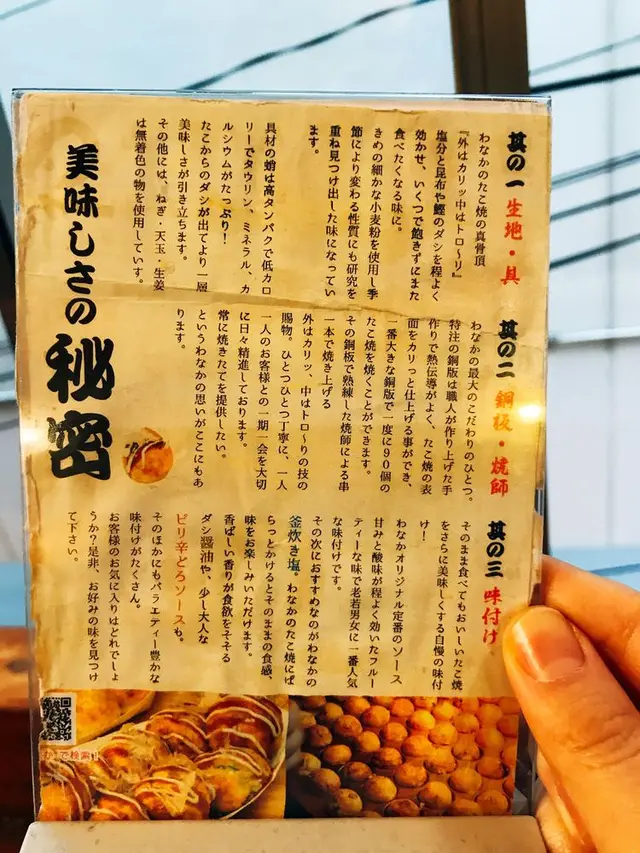 美味しさの秘密
其の一 生地・具
わなかのたこ焼の真骨頂
『外はカリッ中はトロ〜リ』
塩分と昆布や鰹のダシを程よく
効かせ、いくつで飽きずにまた
食べたくなる味に。
きめの細かな小麦粉を使用し季
節により変わる性質にも研究を
重ね見つけ出した味になってい
ます。
具材の蛸は高タンパクで低カロ
リーでタウリン、ミネラル、カ
ルシウムがたっぷり！
たこからのダシが出てより一層
美味しさが引き立ちます。
その他には、ねぎ・天玉・生姜
は無着色の物を使用しています。
其の二 銅板・焼師
わなかの最大のこだわりのひとつ。
特注の銅版は職人が作り上げた手
作りで熱伝導がよく、たこ焼の表
面をカリっと仕上げる事ができ、
一番大きな銅版で一度に９０個の
たこ焼を焼くことができます。
その銅板で熟練した焼師による串
一本で焼き上げる
外はカリッ、中はトロ〜りの技の
賜物。ひとつひとつ丁寧に、一人
一人のお客様との一期一会を大切
に日々精進しております。
常に焼きたてを提供したい。
というわなかの思いがここにもあ
ります。
其の三 味付け
そのまま食べてもおいしいたこ焼
をさらに美味しくする自慢の味付
け！
わなかオリジナル定番のソース
甘みと酸味が程よく効いたフルー
ティーな味で老若男女に一番人気
な味付けです。
その次におすすめなのがわなかの
釜炊き塩。わなかのたこ焼にぱ
らっとかけるとそのままの食感、
味をお楽しみいただけます。
香ばしい香りが食欲をそそる
ダシ醤油や、少し大人な
ピリ辛どろソースも。
そのほかにもバラエティー豊かな
味付けがたくさん。
お客様のお気に入りはどれでしょ
うか？是非、お好みの味を見つけ
て下さい。
で検索！